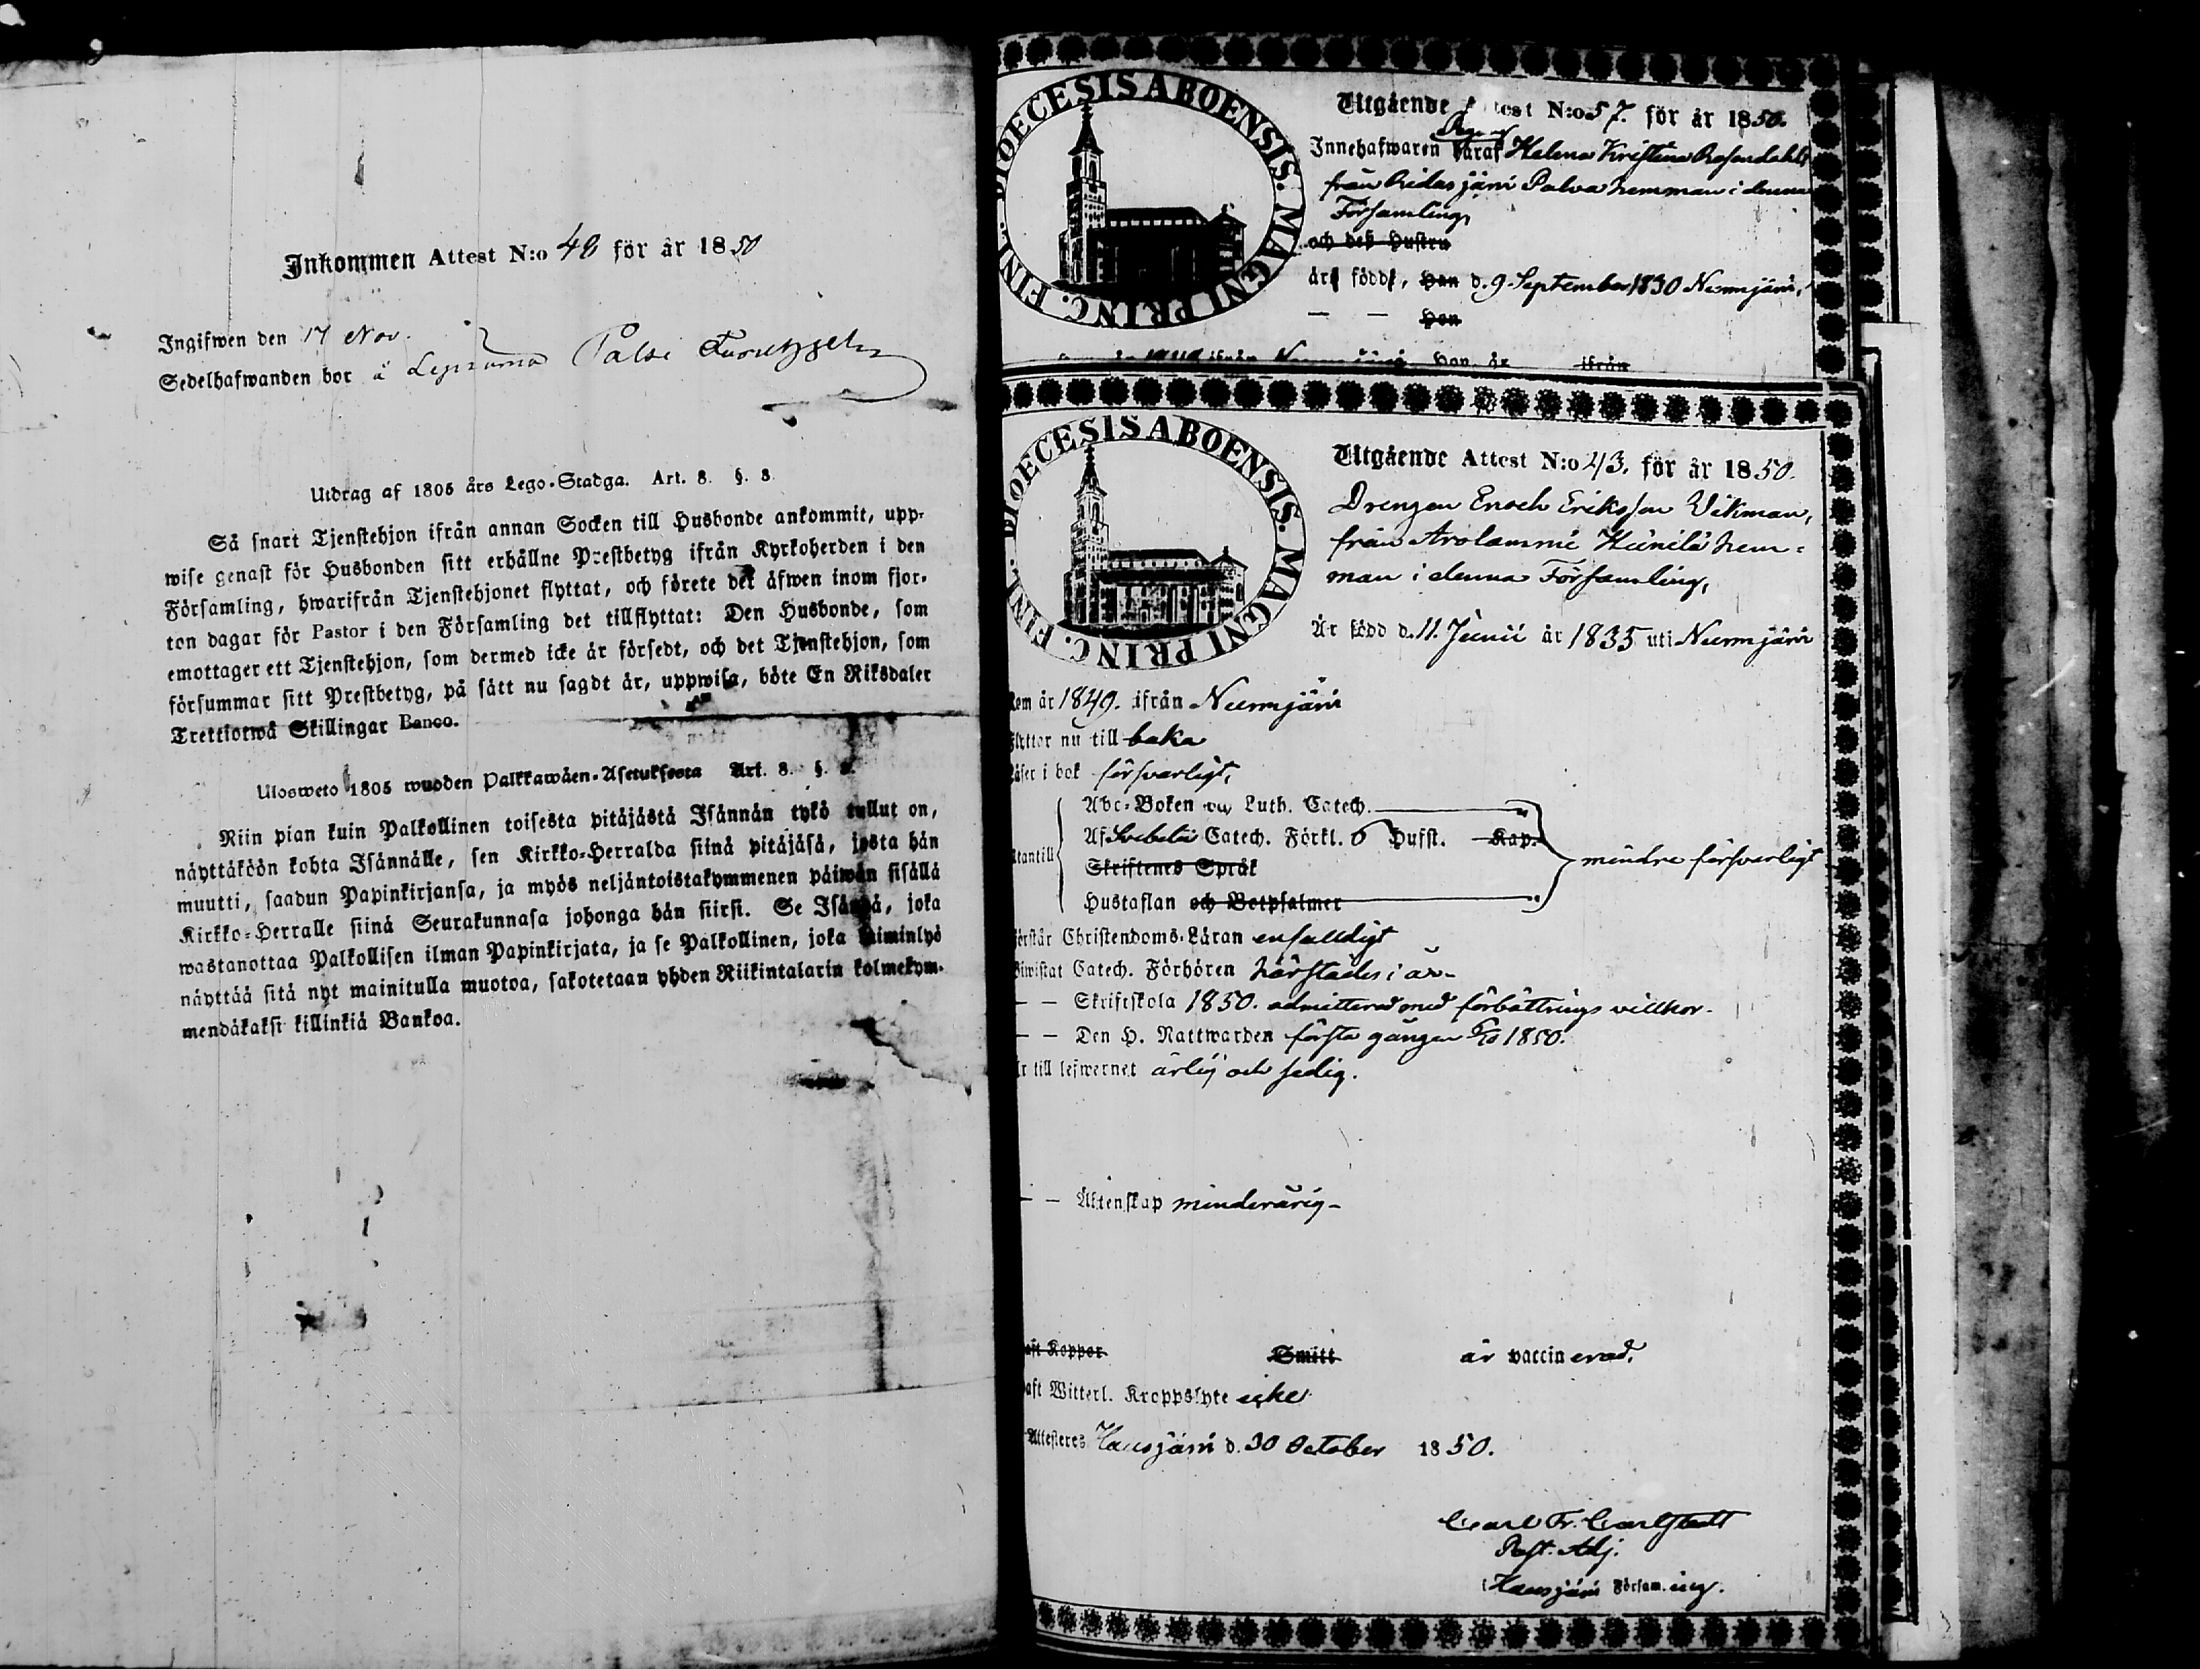 Inkommen Attest N:o 48 för år 1850
Ingifwen den 17 Nov.
Sedelhafwanden bor å Lepsama Palsi
Utdrag af 1805 års Lego-Stadga. Art. 8. §. 8.
Så snart Tjenstehjon ifrån annan Socken till Husbonde ankommit, upp-
wise genast för Husbonden sitt erhållne Prestbetyg ifrån Kyrkoherden i den
Församling, hwarifrån Tjenstehjonet flyttat, och förete det äfwen inom fjor-
ton dagar för Pastor i den Församling det tillflyttat: Den Husbonde, som
emottager ett Tjenstehjon, som dermed icke är försedt, och det Tjenstehjon, som
försummar sitt Prestbetyg, på sätt nu sagdt är, uppwisa, böte En Riksdaler
Trettiotwå Skillingar Banco.
Ulosweto 1805 wuoden Palkkawäen-Asetuksesta Art. 8. §. 8.
Niin pian kuin Palkollinen toisesta pitäjästä Isännän tykö tullut on,
näyttäköön kohta Isännälle, sen Kirkko-Herralda siinä pitäjäsä, josta hän
muutti, saadun Papinkirjansa, ja myös neljäntoistakymmenen päiwän sisällä
Kirkko-Herralle siinä Seurakunnasa johonga hän siirsi. Se Isändä, joka
wastanottaa Palkollisen ilman Papinkirjata, ja se Palkollinen, joka laiminlyö
näyttää sitä nyt mainitulla muotoa, sakotetaan yhden Riikintalarin kolmekym-
mendäkaksi killinkiä Bankoa.
DIOECESIS ABOENSIS. MAGNI PRINC. FINL.
Utgående Attest N:o 57. för år 1850.
Innehafwaren Helena Kristina Rosendahl
från Ridasjärvi Palva hemman i denna
Församling,
och deß Hustru
är född, Han d. 9 September 1830 Nurmjärvi,
— — Hon
Hon, år ifrån
DIOECESIS ABOENSIS. MAGNI PRINC. FINL.
Utgående Attest N:o 43. för år 1850.
Drengen Enoch Eriksson Vikman,
från Arolammi Heinilä hem-
man i denna Församling,
Är född d. 11. Junii år 1835 uti Nurmjärvi
Kom år 1849. ifrån Nurmjärvi
Flyttar nu till baka
Läser i bok försvarligt,
Abc-Boken och Luth. Catech.
Af Svebelii Catech. Förkl. 6 Hufst. Kap.
Utantill
Skriftenes Språk
mindre försvarligt
Hustaflan och Botpsalmer
Förstår Christendoms-Läran enfaldigt
Biwistat Catech. Förhören härstädes i år -
— — Skriftskola 1850. admitterad med förbättrings villkor -
— — Den H. Nattwarden första gången 6/10 1850.
Är till lefwernet ärlig och sedig.
— — Äktenskap minderårig -
Haft Koppor Smitt är vaccinerad.
Haft Witterl. Kroppslyte icke
Attesteres Hausjärvi d. 30 October 1850.
Carl Fr. Carlstedt
Past. Adj.
i Hausjärvi Församling.